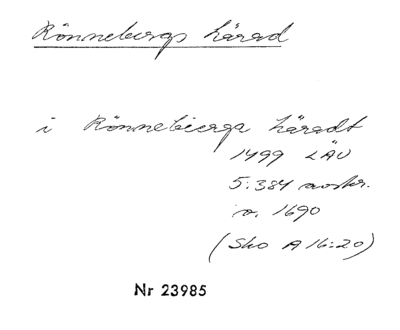 Rönnebergs härad
i Rönnebierga häradt
1499 LÄU
5:384 avskr.
o. 1690
(Sko A 16:20)
Nr 23985